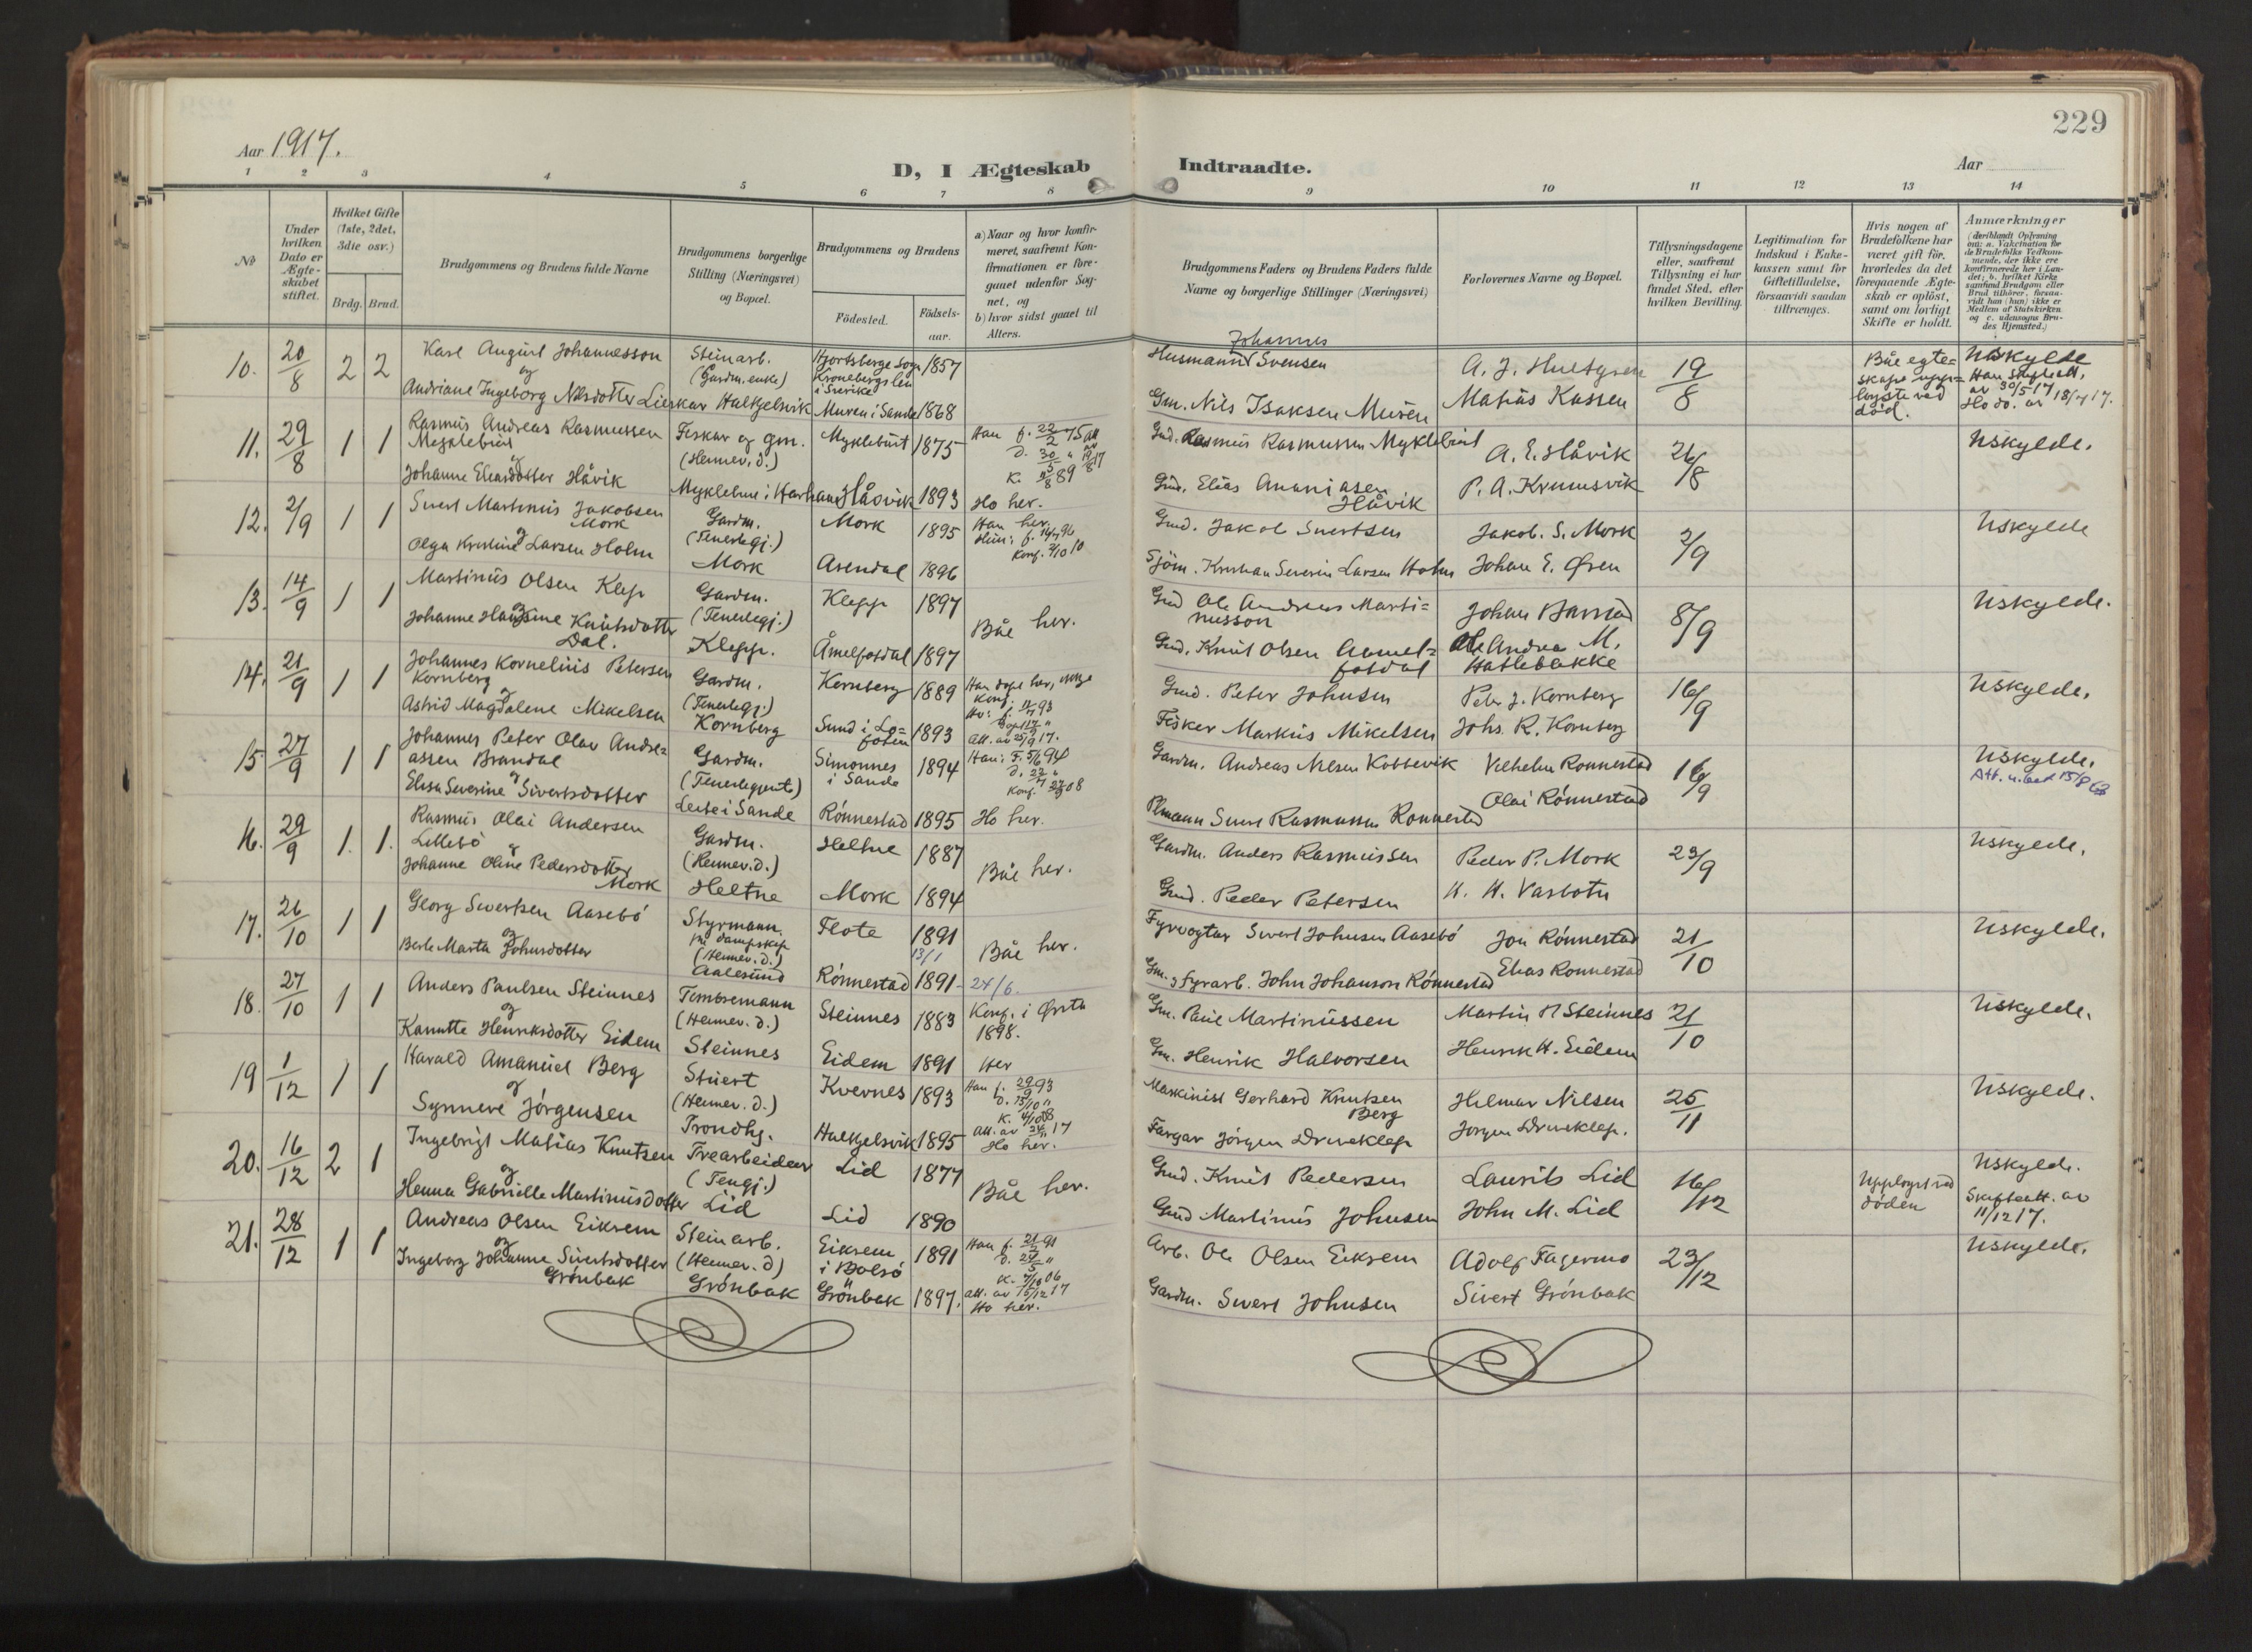 229
Aar 1917.
D, I Ægteskab Indtraadte.
Aar
1 2 3 4 5 6 7 8 9 10 11 12 13 14
No
Under hvilken Dato er Ægteskabet stiftet.
Hvilket Gifte (1ste, 2det, 3die osv.)
Brdg. Brud.
Brudgommens og Brudens fulde Navne
Brudgommens borgerlige Stilling (Næringsvei) og Bopæl.
Brudgommens og Brudens
Födested.
Födsels-aar.
a) Naar og hvor konfirmeret, saafremt Konfirmationen er foregaaet udenfor Sognet, og
b) hvor sidst gaaet til Alters.
Brudgommens Faders og Brudens Faders fulde Navne og borgerlige Stillinger (Næringsvei)
Forlovernes Navne og Bopæl.
Tillysningsdagene eller, saafremt Tillysning ei har fundet Sted, efter hvilken Bevilling.
Legitimation for Indskud i Enkekassen samt for Giftetilladelse, forsaavidt saadan tiltrænges.
Hvis nogen af Brudefolkene har været gift för, hvorledes da det foregaaende Ægteskab er oplöst, samt om lovligt Skifte er holdt.
Anmærkninger
(deriblandt Oplysning om: a. Vakcination for de Brudefolks Vedkommende, der ikke ere konfirmerede her i Landet; b. hvilket Kirkesamfund Brudgom eller Brud tilhörer, forsaavidt han (hun) ikke er Medlem af Statskirken og c. udensogns Brudes Hjemsted.)
10. 20/8 2 2 Karl August Johannesson
og
Andriane Ingeborg Nilsdotter Lierkar
Steinarb.
(Gardm. enke)
Halkjelsvik
Hjortsberge Sogn Kronebergs len i Sverike 1857
Muren i Sande 1868
Johannes
Husmann Svensen
Gm. Nils Isaksen Muren
A. J. Hultgren
Matias Kassen
19/8
Båe egteskape uppløyste ved död.
Uskylde
Han Skifteatt. av 30/5 17
Ho do. av 18/7 17.
11. 29/8 1 1 Rasmus Andreas Rasmussen Myklebust
og
Johanne Eliasdotter Håvik
Fiskar og gm.
(Heimev. d.)
Myklebust 1875
Håvik 1893
Han f. 22/2 75
Ho her.
Gmd. Rasmus Rasmussen Myklebust
Gmd. Elias Ananiasen Håvik
A. E. Håvik
P. A. Krumsvik
26/8
Uskylde.
12. 2/9 1 1 Sivert Martinus Jakobsen Mork
og
Olga Kristine Larsen Holm
Gardm.
(Tenerlegj.)
Mork
Mork 1895
Arendal 1896
Han her.
Gmd. Jakob Sivertsen
Sjöm. Kristian Severin Larsen Holm
Jakob. S. Mork
Johan E. Øren
2/9
Uskylde
13. 14/9 1 1 Martinus Olsen Klep
og
Johanne Hansine Knutsdotter Dal.
Gardm.
(Tenerlegj.)
Klepp.
Klepp 1897
Åmelfotdal 1897
Båe her.
Gmd Ole Andreas Martinusson
Gmd. Knut Olsen Aamelfotdal
Johan Barstad
Ole Andrea M. Hatlebakke
8/9
Uskylde.
14. 21/9 1 1 Johannes Kornelius Petersen Kornberg
og
Astrid Magdalene Mikelsen
Gardm.
(Tenerlegj.)
Kornberg
Kornberg 1889
Sund i Lofoten 1893
Gmd. Peter Johnsen
Fisker Markus Mikelsen
Peter J. Kornberg
Johs. R. Kornberg
16/9
Uskylde.
15. 27/9 1 1 Johannes Peter Olav Andreassen Brandal
og
Elisa Severine Sivertsdotter
Gardm.
(Tenerlegjente)
Leite i Sande
Simonnes i Sande 1894
Rönnestad 1895
Han: F. 5/6 94
Ho her.
Gardm. Andreas Nilsen Kobbevik
Plmann Sivert Rasmussen Ronnestad
Vilhelm Ronnestad
Olai Rönnestad
16/9
Uskylde.
16. 29/9 1. 1. Rasmus Olai Andersen Lillebö
og
Johanne Oline Pedersdotter Mork
Gardm.
(Heimev. d.)
Heltne
Heltne 1887
Mork 1894
Båe her.
Gardm. Anders Rasmussen
Gmd. Peder Petersen
Peder P. Mork
H. H. Vasbotn
23/9
Uskylde.
17. 26/10 1 1 Georg Sivertsen Aasebö
og
Berte Marta Johnsdotter
Styrmann på dampskip
(Heimev. d.)
Aalesund
Flote 1891 13/1
Rönnestad 1891 - 24/6.
Båe her.
Fyrvogtar Sivert Johnsen Aasebö
Gm. og fyrarb. John Johanson Rönnestad
Jon Rönnestad
Elias Ronnestad
21/10
Uskylde.
18. 27/10 1 1 Anders Paulsen Steinnes
og
Kanutte Henriksdotter Eidem
Tømbremann
(Heimev. d.)
Steinnes
Steinnes 1883
Eidem 1891
Konf. i Ørsta 1898.
Her
Gm. Paul Martinussen
Gm. Henrik Halvorsen
Martin P Steinnes
Henrik H. Eidem
21/10
Uskylde.
19 1/12 1 1 Harald Amanuel Berg
og
Synneve Jörgensen
Stuert
(Heimev. d.)
Trondhj.
Kvernes 1893
Halkjelsvik 1895
Han f. 29/9 93
Ho her.
Maskinist Gerhard Knutsen Berg
Fargar Jörgen Driveklep
Hilmar Nilsen
Jorgen Driveklep.
25/11
Uskylde.
20. 16/12 2 1 Ingebrigt Matias Knutsen
og
Henna Gabrielle Martinusdotter
Trearbeidar
(Tengj.)
Lid
Lid 1877
Lid 1890
Båe her.
Gmd. Knut Pedersen
Gmd Martinus Johnsen
Laurits Lid
John M. Lid
16/12
Upployst ved döden
Uskylde.
Skifteatt. av 11/12 17.
21. 28/12 1 1 Andreas Olsen Eikrem
og
Ingeborg Johanne Sivertsdotter Grönbak
Steinarb.
(Heimev. d)
Grönbak
Eikrem i Bolsö 1891
Grönbak 1897.
Ho her.
Arb. Ole Olsen Eikrem
Gardm. Sivert Johnsen
Adolf Fagermo
Sivert Grönbak
23/12
Uskylde.